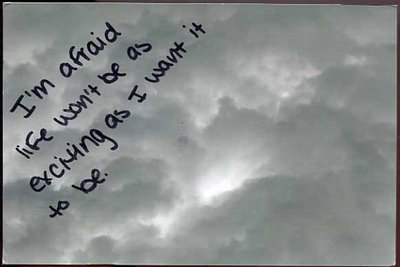 I'm afraid
life won't be as
exciting as I want it
to be.